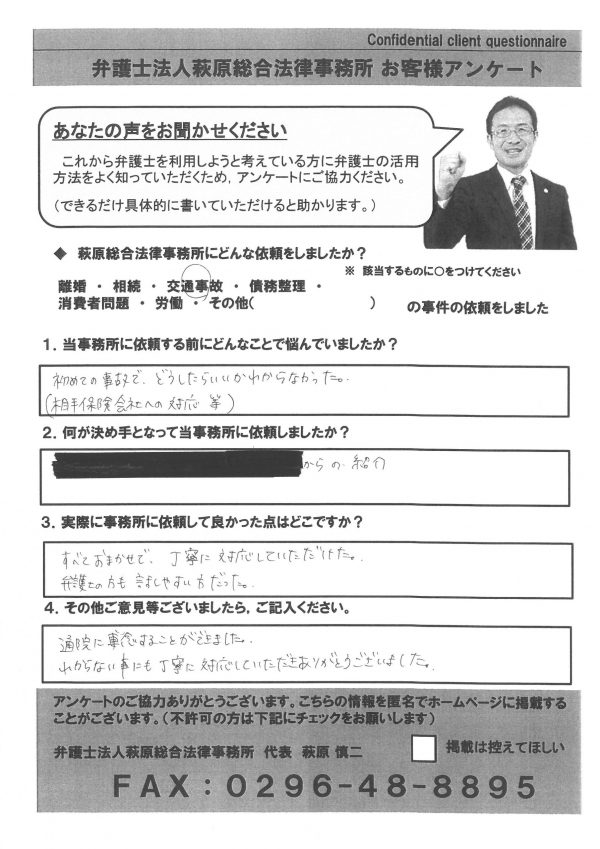 Confidential client questionnaire
弁護士法人萩原総合法律事務所 お客様アンケート
あなたの声をお聞かせください
これから弁護士を利用しようと考えている方に弁護士の活用
方法をよく知っていただくため，アンケートにご協力ください。
（できるだけ具体的に書いていただけると助かります。）
◆ 萩原総合法律事務所にどんな依頼をしましたか？
※ 該当するものに○をつけてください
離婚 ・ 相続 ・ 交通事故 ・ 債務整理 ・
消費者問題 ・ 労働 ・ その他( ) の事件の依頼をしました
１．当事務所に依頼する前にどんなことで悩んでいましたか？
初めての事故で、どうしたらいいかわからなかった。
(相手保険会社への対応 等)
２．何が決め手となって当事務所に依頼しましたか？
からの 紹介
３．実際に事務所に依頼して良かった点はどこですか？
すべておまかせで、丁寧に対応していただけた。
弁護士の方も 話しやすい方だった。
４．その他ご意見等ございましたら，ご記入ください。
通院に専念することができました。
わからない事にも丁寧に対応していただきありがとうございました。
アンケートのご協力ありがとうございます。こちらの情報を匿名でホームページに掲載する
ことがございます。（不許可の方は下記にチェックをお願いします）
弁護士法人萩原総合法律事務所 代表 萩原 慎二
掲載は控えてほしい
FAX：0296-48-8895